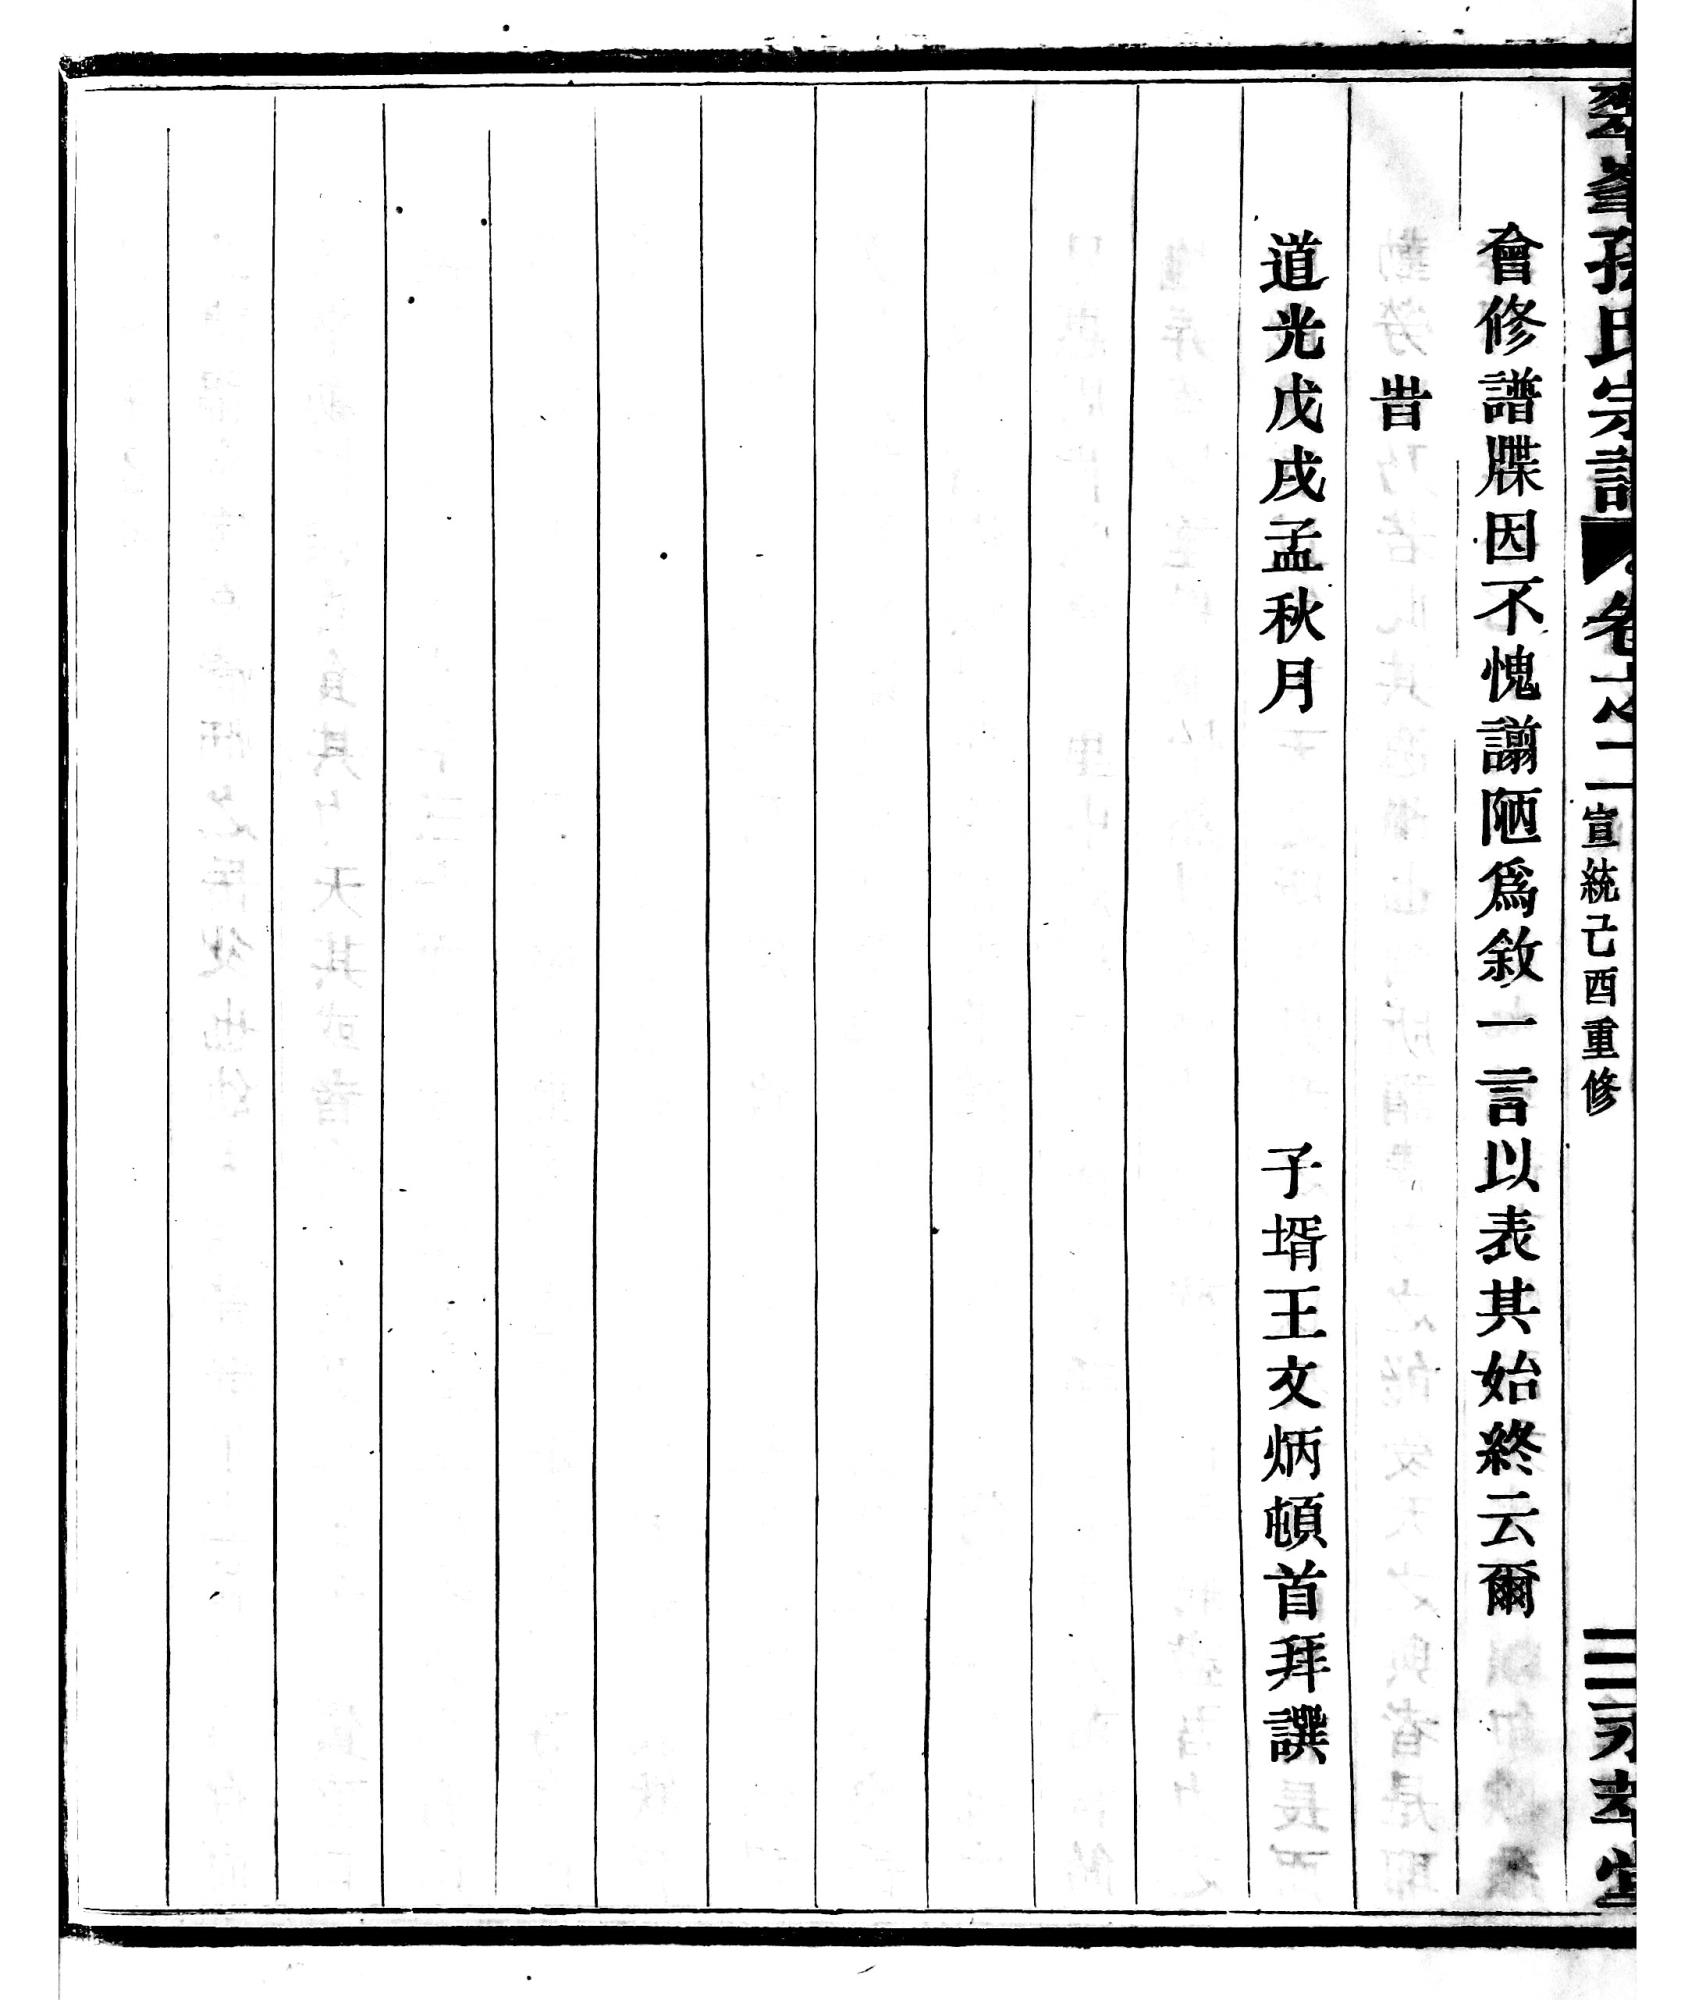 翠峯孫氏宗譜 卷之二 宣統己酉重修 三 永萃堂
會修譜牒因不愧謭陋爲敘一言以表其始終云爾
旹
道光戊戌孟秋月 子壻王文炳頓首拜譔